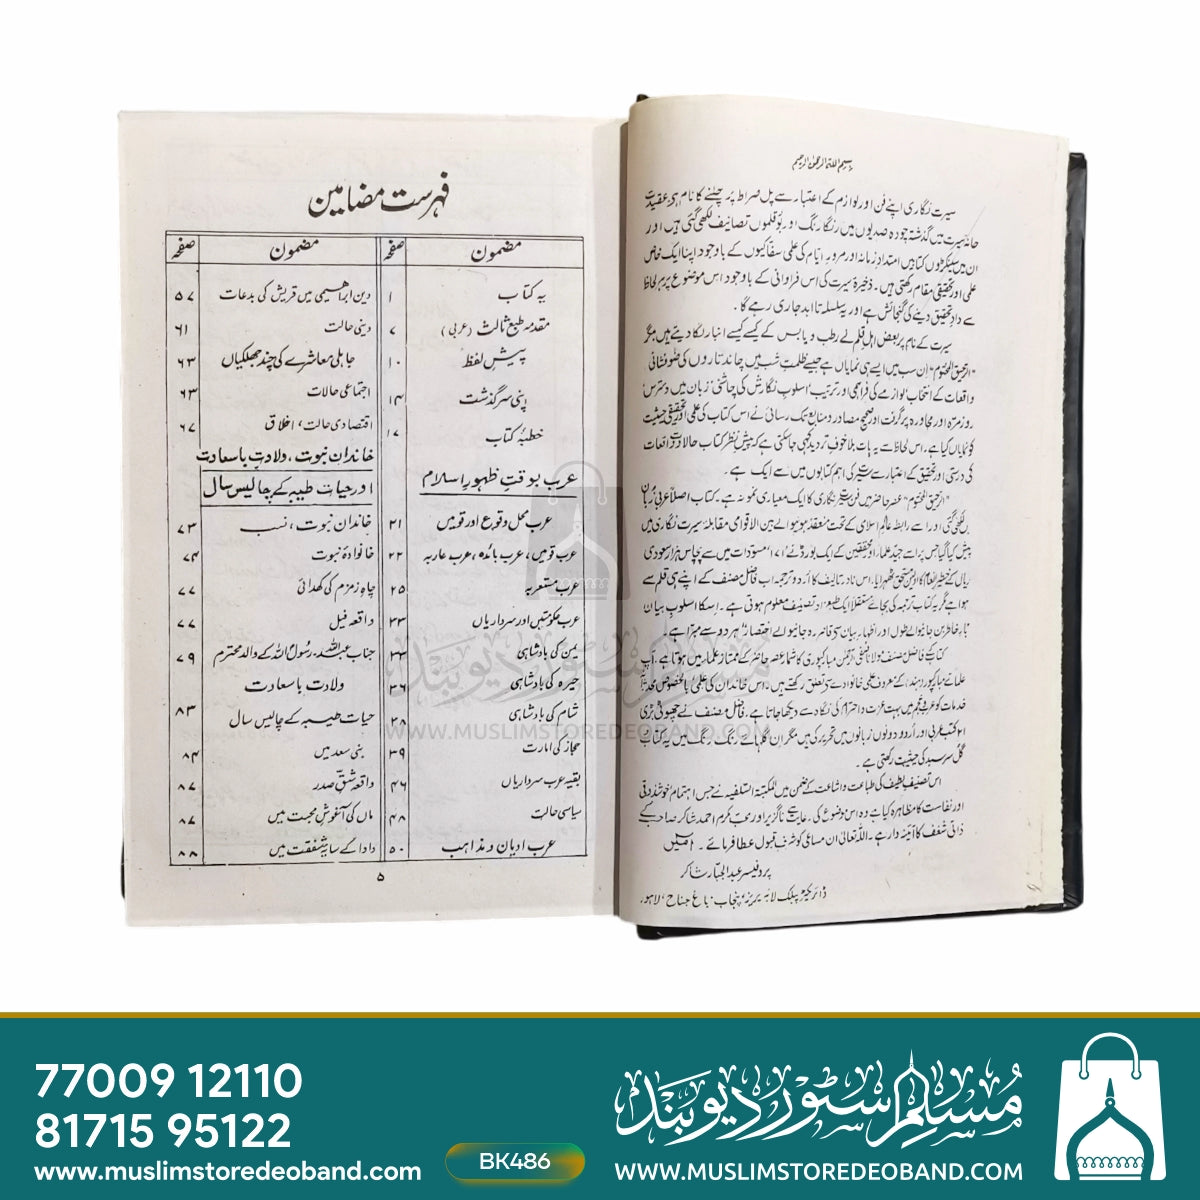 بسم اللہ الرحمن الرحیم
سیرت نگاری اپنے فن اور لوازم کے اعتبار سے پل صراط پر چلنے کا نام ہے، عقیدت
خانۂ سیرت میں گذشتہ چودہ صدیوں میں رنگا رنگ اور بوقلموں تصانیف لکھی گئی ہیں اور
ان میں سینکڑوں کتابیں امتدادِ زمانہ اور مرورِ ایام کی علمی سفاکیوں کے باوجود اپنا ایک خاص
علمی اور تحقیقی مقام رکھتی ہیں۔ ذخیرۂ سیرت کی اس فراوانی کے باوجود اس موضوع پر ہر لحاظ
سے دادِ تحقیق دینے کی گنجائش ہے اور یہ سلسلہ تا ابد جاری رہے گا۔
سیرت کے نام پر بعض اہلِ قلم نے رطب و یابس کے کیسے کیسے انبار لگا دیتے ہیں مگر
"الرحیق المختوم" ان سب میں ایسے ہی نمایاں ہے جیسے ظلمتِ شب میں چاند تاروں کی ضوفشانی
واقعات کے انتخاب لوازمے کی فراہمی اور ترتیب، اسلوبِ نگارش کی چاشنی، زبان میں دسترس
روزمرہ اور محاورہ پر گرفت اور صحیح مصادر و منابع تک رسائی نے اس کتاب کی علمی اور تحقیقی حیثیت
کو نمایاں کیا ہے۔ اس لحاظ سے یہ بات بلا خوفِ تردید کہی جا سکتی ہے کہ پیش نظر کتاب حالات و واقعات
کی درستی اور تحقیق کے اعتبار سے سیرت کی اہم کتابوں میں سے ایک ہے۔
"الرحیق المختوم" عصرِ حاضر میں فنِ سیرت نگاری کا ایک معیاری نمونہ ہے۔ کتاب اصلاً عربی زبان
میں لکھی گئی اور اسے رابطہ عالم اسلامی کے تحت منعقد ہونیوالے بین الاقوامی مقابلۂ سیرت نگاری میں
پیش کیا گیا جس پر اسے جید علماء اور محققین کے ایک بورڈ نے ۱۷۱ مسودات میں سے پچاس ہزار سعودی
ریال کے خطیر انعام کا اولین مستحق ٹھہرایا۔ اس نادر تالیف کا اردو ترجمہ اب فاضل مصنف کے اپنے ہی قلم سے
ہوا ہے مگر یہ کتاب ترجمہ کی بجائے مستقلاً ایک طبع زاد تصنیف معلوم ہوتی ہے۔ اسکا اسلوبِ بیان
بارِ خاطر بن جانیوالے طول اور اظہارِ بیان سے قاصر رہ جانیوالے اختصار ہر دو سے مبرا ہے۔
کتاب کے فاضل مصنف مولانا صفی الرحمٰن مبارکپوری کا شمار عصر حاضر کے ممتاز علماء میں ہوتا ہے، آپ
علمائے مبارکپور (ہند) کے معروف علمی خانوادے سے تعلق رکھتے ہیں۔ اس خاندان کی علمی بالخصوص محدثانہ
خدمات کو عرب و عجم میں بہت عزت و احترام کی نگاہ سے دیکھا جاتا ہے۔ فاضل مصنف نے چھوٹی بڑی
۲۱ کتب عربی اور اردو دونوں زبانوں میں تحریر کی ہیں مگر ان گلہائے رنگ رنگ میں یہ کتاب
گلِ سرسبد کی حیثیت رکھتی ہے۔
اس تصنیفِ لطیف کی طباعت و اشاعت کے ضمن میں المکتبۃ السلفیہ نے جس اہتمام خوش ذوقی
اور نفاست کا مظاہرہ کیا ہے وہ اس موضوع کی رعایت سے ناگزیر اور محب مکرم احمد شاکر صاحب کے
ذاتی شغف کا آئینہ دار ہے۔ اللہ تعالیٰ ان مساعی کو شرفِ قبول عطا فرمائے۔ آمین
پروفیسر عبدالجبار شاکر
ڈائریکٹر پبلک لائبریریز، پنجاب۔ باغ جناح، لاہور۔
فہرست مضامین
مضمون صفحہ مضمون صفحہ
یہ کتاب ۱
مقدمہ طبع ثالث (عربی) ۷
پیش لفظ ۱۰
اپنی سرگذشت ۱۴
خطبۂ کتاب ۱۷
عرب بوقتِ ظہورِ اسلام
عرب محل وقوع اور قومیں ۲۱
عرب قومیں، عرب بائدہ، عرب عاربہ ۲۲
عرب مستعربہ ۲۵
عرب حکومتیں اور سرداریاں ۳۳
یمن کی بادشاہی ۳۳
حیرہ کی بادشاہی ۳۶
شام کی بادشاہی ۳۸
حجاز کی امارت ۳۹
بقیہ عرب سرداریاں ۴۶
سیاسی حالت ۴۸
عرب ادیان و مذاہب ۵۰
دین ابراہیمی میں قریش کی بدعات ۵۷
دینی حالت ۶۱
جاہلی معاشرے کی چند جھلکیاں ۶۳
اجتماعی حالات ۶۳
اقتصادی حالت، اخلاق ۶۷
خاندانِ نبوت، ولادتِ باسعادت
اور حیاتِ طیبہ کے چالیس سال
خاندانِ نبوت، نسب ۷۳
خانوادۂ نبوت ۷۴
چاہِ زمزم کی کھدائی ۷۷
واقعہ فیل ۷۷
جناب عبداللہ۔ رسول اللہ کے والد محترم ۷۹
ولادت باسعادت
حیاتِ طیبہ کے چالیس سال ۸۳
بنی سعد میں ۸۴
واقعہ شقِّ صدر ۸۷
ماں کی آغوشِ محبت میں ۸۷
دادا کے سایۂ شفقت میں ۸۸
۵
مسلم سٹور دیوبند
WWW.MUSLIMSTOREDEOBAND.COM
77009 12110
81715 95122
www.muslimstoredeoband.com
BK486
مسلم سٹور دیوبند
WWW.MUSLIMSTOREDEOBAND.COM